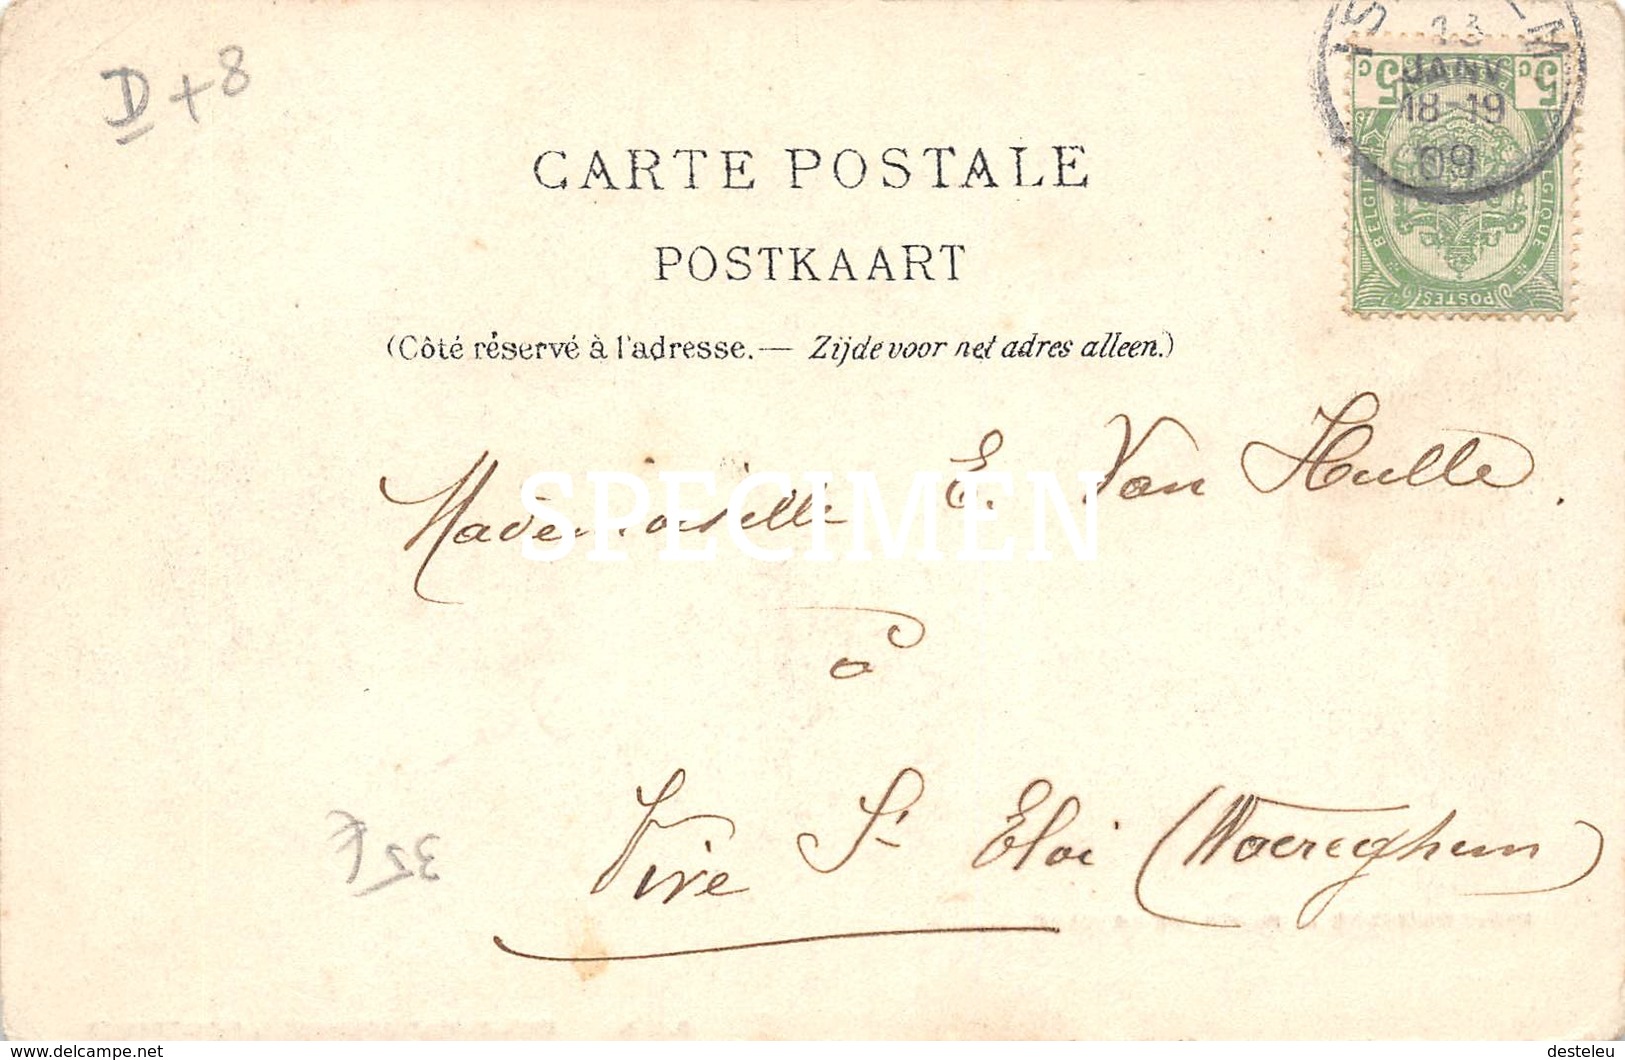 D + 8
13
JANV
18-19
09
5 c 5 c
BELGIE BELGIQUE
POSTES
CARTE POSTALE
POSTKAART
(Côté réservé à l'adresse. — Zijde voor het adres alleen.)
Mademoiselle E. Van Hulle.
SPECIMEN
à
Vive St Eloi (Waereghem)
35 f
delcampe.net
desteleu